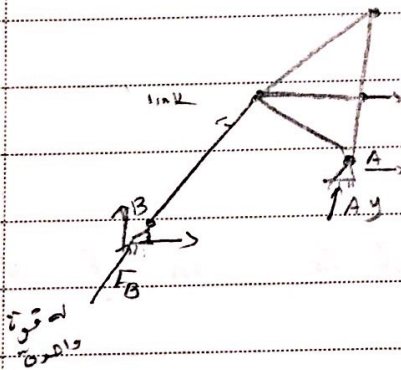 link
A
B
A y
F_B
له قوة
واحدة